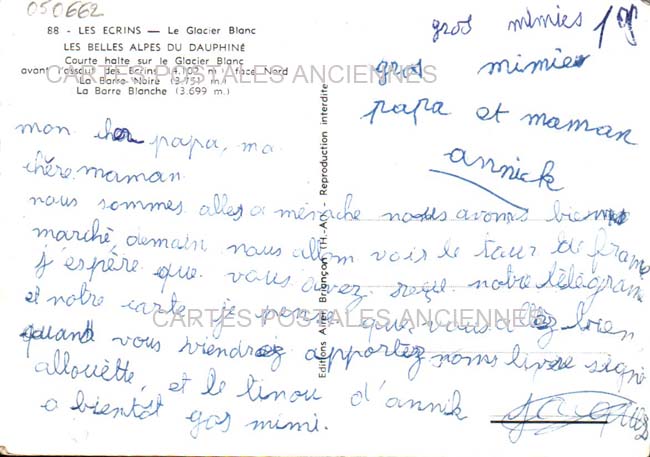 050662
88 - LES ECRINS — Le Glacier Blanc
LES BELLES ALPES DU DAUPHINÉ
Courte halte sur le Glacier Blanc
avant l'assaut des Ecrins 4.102 m. face Nord
La Barre Noire (3.751 m.)
La Barre Blanche (3.699 m.)
gros mimies
gros mimies
papa et maman
annick
mon cher papa, ma
chère maman
nous sommes alles a ménoche nous avons bien
marché, demain nous allom voir le tour de franc
j'espère que vous avez reçue notre télégram
et notre carte je pense que vous allez bien
quand vous viendrez apportez nous livre signe
allouëtte, et le tinou d'annik
a bientôt gos mimi.
Editions André Briançon (H.-A.) - Reproduction interdite
CARTES POSTALES ANCIENNES
CARTES POSTALES ANCIENNES